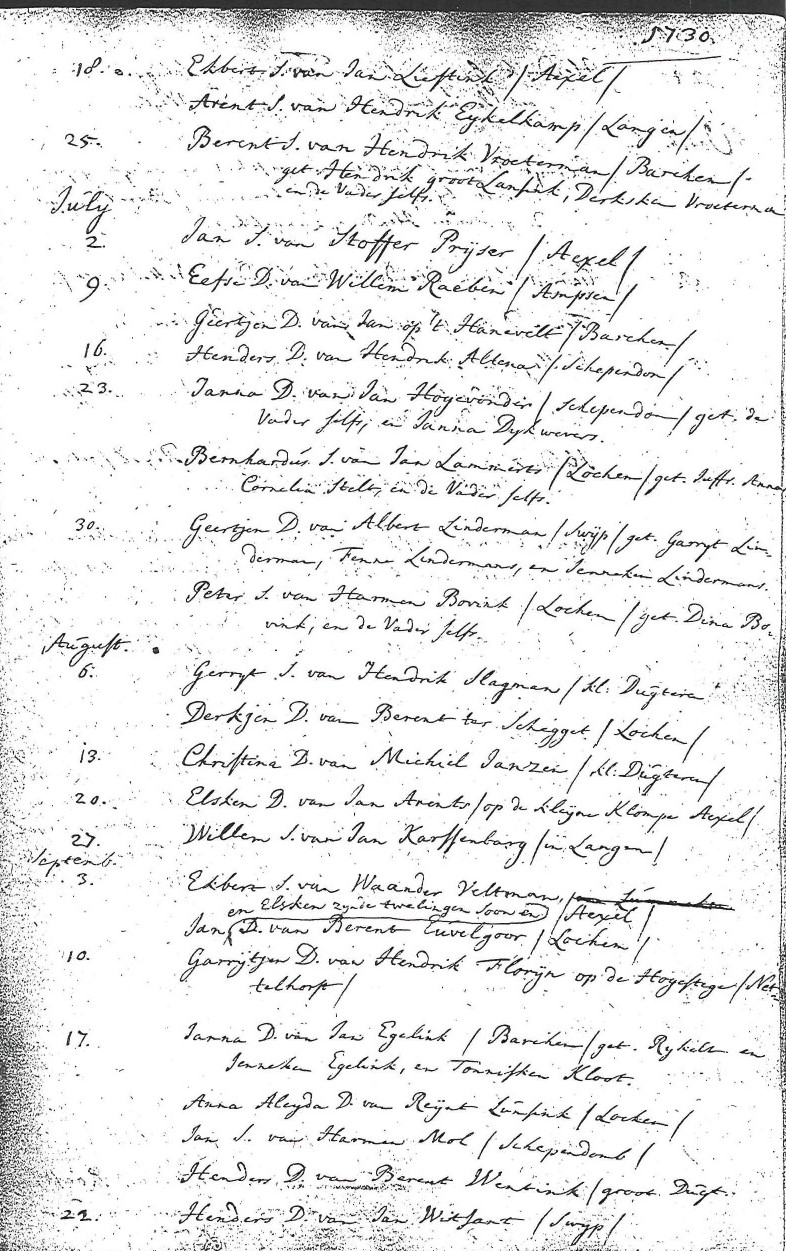 1730.
18. Ekbert S. van Jan Lieftink / Aexel /
Arent S. van Hendrik Eykelkamp / Langen /
25. Berent S. van Hendrik Vroeterman / Barchen /.
get. Hendrik groot Lansink, Derksken Vroeterma
en de Vader selfs.
July
2. Jan S. van Stoffer Prijser / Aexel /
9 Eefse D. van Willem Raeben / Ampsen /
Geertjen D. van Jan op 't Hanevelt / Barchen /
16. Henders D. van Hendrik Altena / Schependom /
23. Janna D. van Jan Hogevonder / Schependom / get. de
Vader selfs, en Janna Dykwevers.
Bernhardus S. van Jan Lammerts / Lochem / get. Juffr. Anna
Cornelia Stelts, en de Vader selfs.
30. Geertjen D. van Albert Linderman / Swijp / get. Garryt Lin-
derman, Fenne Lindermans, en Jenneken Lindermans.
Peter S. van Harmen Bovink / Lochem / get. Dina Bo-
vink, en de Vader selfs.
August.
6. Gerryt S. van Hendrik Slagman / kl: Dugtere
Derkjen D. van Berent ter Schegget / Lochem /
13. Christina D. van Michiel Janzen / kl: Dugteren /
20. Elsken D. van Jan Arents / op de kleyne Klompe Aexel /
27. Willem S. van Jan Karssenbarg / in Langen /
Septemb.
3. Ekbert S. van Waander Veltman, / Aexel /
en Elsken zynde twelingen soon en
Jan D. van Berent Euvelgoor / Lochem /
10. Garrytjen D. van Hendrik Florijn op de Hogestege / Net-
telhorst /
17. Janna D. van Jan Egelink / Barchen / get. Rykelt en
Jenneken Egelink, en Tonnisken Kloot.
Anna Aleyda D. van Reynt Lunsink / Lochem /
Jan S. van Harmen Mol / Schependomb /
Henders D. van Berent Wentink / groot Dugt.
22. Henders D. van Jan Witfant / Swyp /